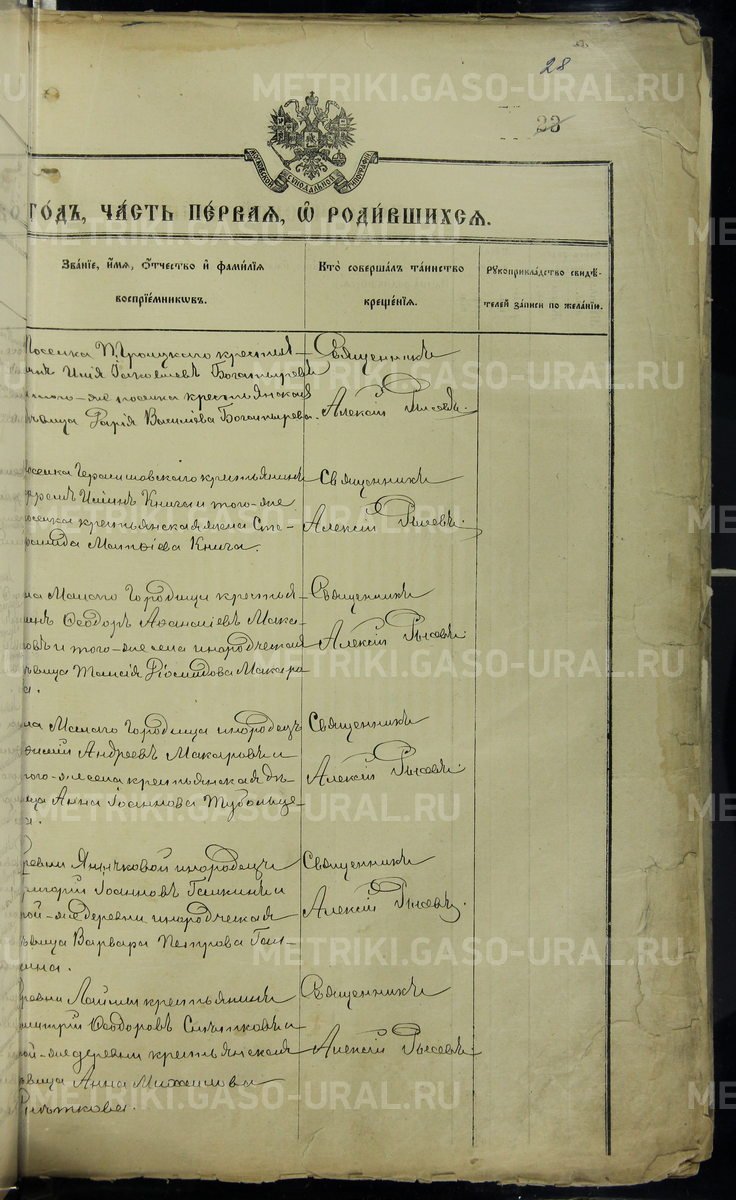 28
23
МОСКОВСКОЙ СѴНОДАЛЬНОЙ ТИПОГРАФІИ
ГОДЪ, ЧАСТЬ ПЕРВАЯ, Ѽ РОДИВШИХСЯ.
Званіе, имя, отчество и фамилія воспріемниковъ.
Кто совершалъ таинство крещенія.
Рукоприкладство свидѣтелей записи по желанію.
поселка Троицкаго крестья-
Илія Іаковлевъ Богатырев
того-же поселка крестьянская
вица Василіева Богатырева.
Священникъ
Алексій Рысевъ.
поселка крестьянинъ
Книга и того-же
поселка крестьянская жена Сте-
Матѳіева Книга.
Священникъ
Алексій Рысевъ.
ла Малаго Городища крестья-
Ѳеодоръ Аѳанасіевъ Мака-
ровъ и того-же села инородческая
вица Таисія Діомидова Макаро
а.
Священникъ
Алексій Рысевъ.
ла Малаго Городища инородецъ
Андреевъ Макаровъ и
ого-же села крестьянская дѣ-
ица Анна Іоаннова
а.
Священникъ
Алексій Рысевъ.
ревни Янычковой инородецъ
ригорій Іоанновъ Галкинъ и
ой-же деревни инородческая
вица Варвара Петрова Гал-
кина.
Священникъ
Алексій Рысевъ.
ревни крестьянинъ
митрій Ѳеодоровъ и
ой-же деревни крестьянская
вица Анна Михаилова
Священникъ
Алексій Рысевъ.
METRIKI.GASO-URAL.RU